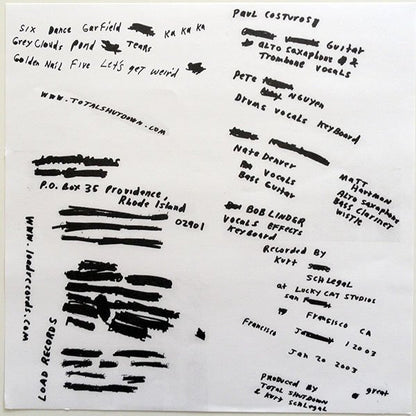 Six Dance Garfield Ka Ka Ka
Grey Clouds Pond Tears
Golden Nail Five Let's get weird
www.TOTALSHUTDOWN.com
P.O. Box 35 Providence,
Rhode Island
02901
www.loadrecords.com
LOAD RECORDS
Paul Costuros
Guitar
Alto Saxaphone &
Trombone vocals
Pete
Nguyen
Drums vocals Keyboard
Nate Denver
vocals
Bass Guitar
Matt
Hartman
Alto saxophone
Bass Clarinet
BOB LINDER
vocals effects
Keyboard
Recorded By
Kurt
SCHLEGAL
at LUCKY CAT STUDIOS
San
Francisco CA
Francisco
2003
Jan 20 2003
Produced by great
TOTAL SHUTDOWN
& Kurt schlegal